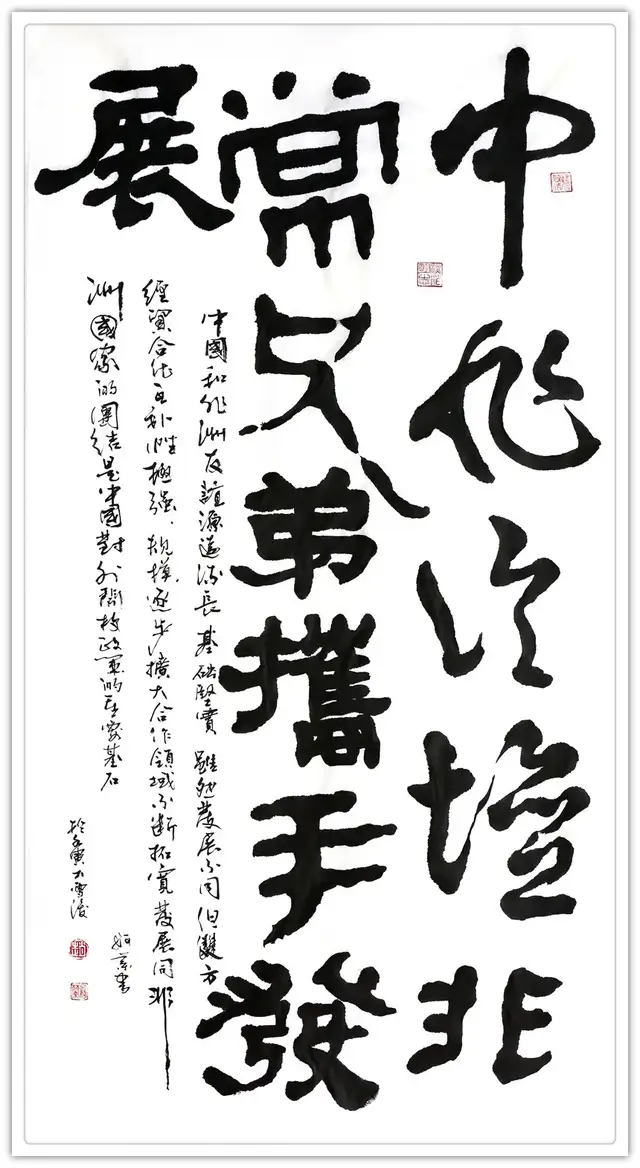 中非论壇非
常兄弟攜手發
展
中國和非洲友誼源遠流長基础堅實雖然發展不同但雙方
經貿合作互补性極强、規模逐步擴大合作領域不斷拓寬發展同非
洲國家的團結是中國對外開放政策的重要基石
於壬寅大雪後
書